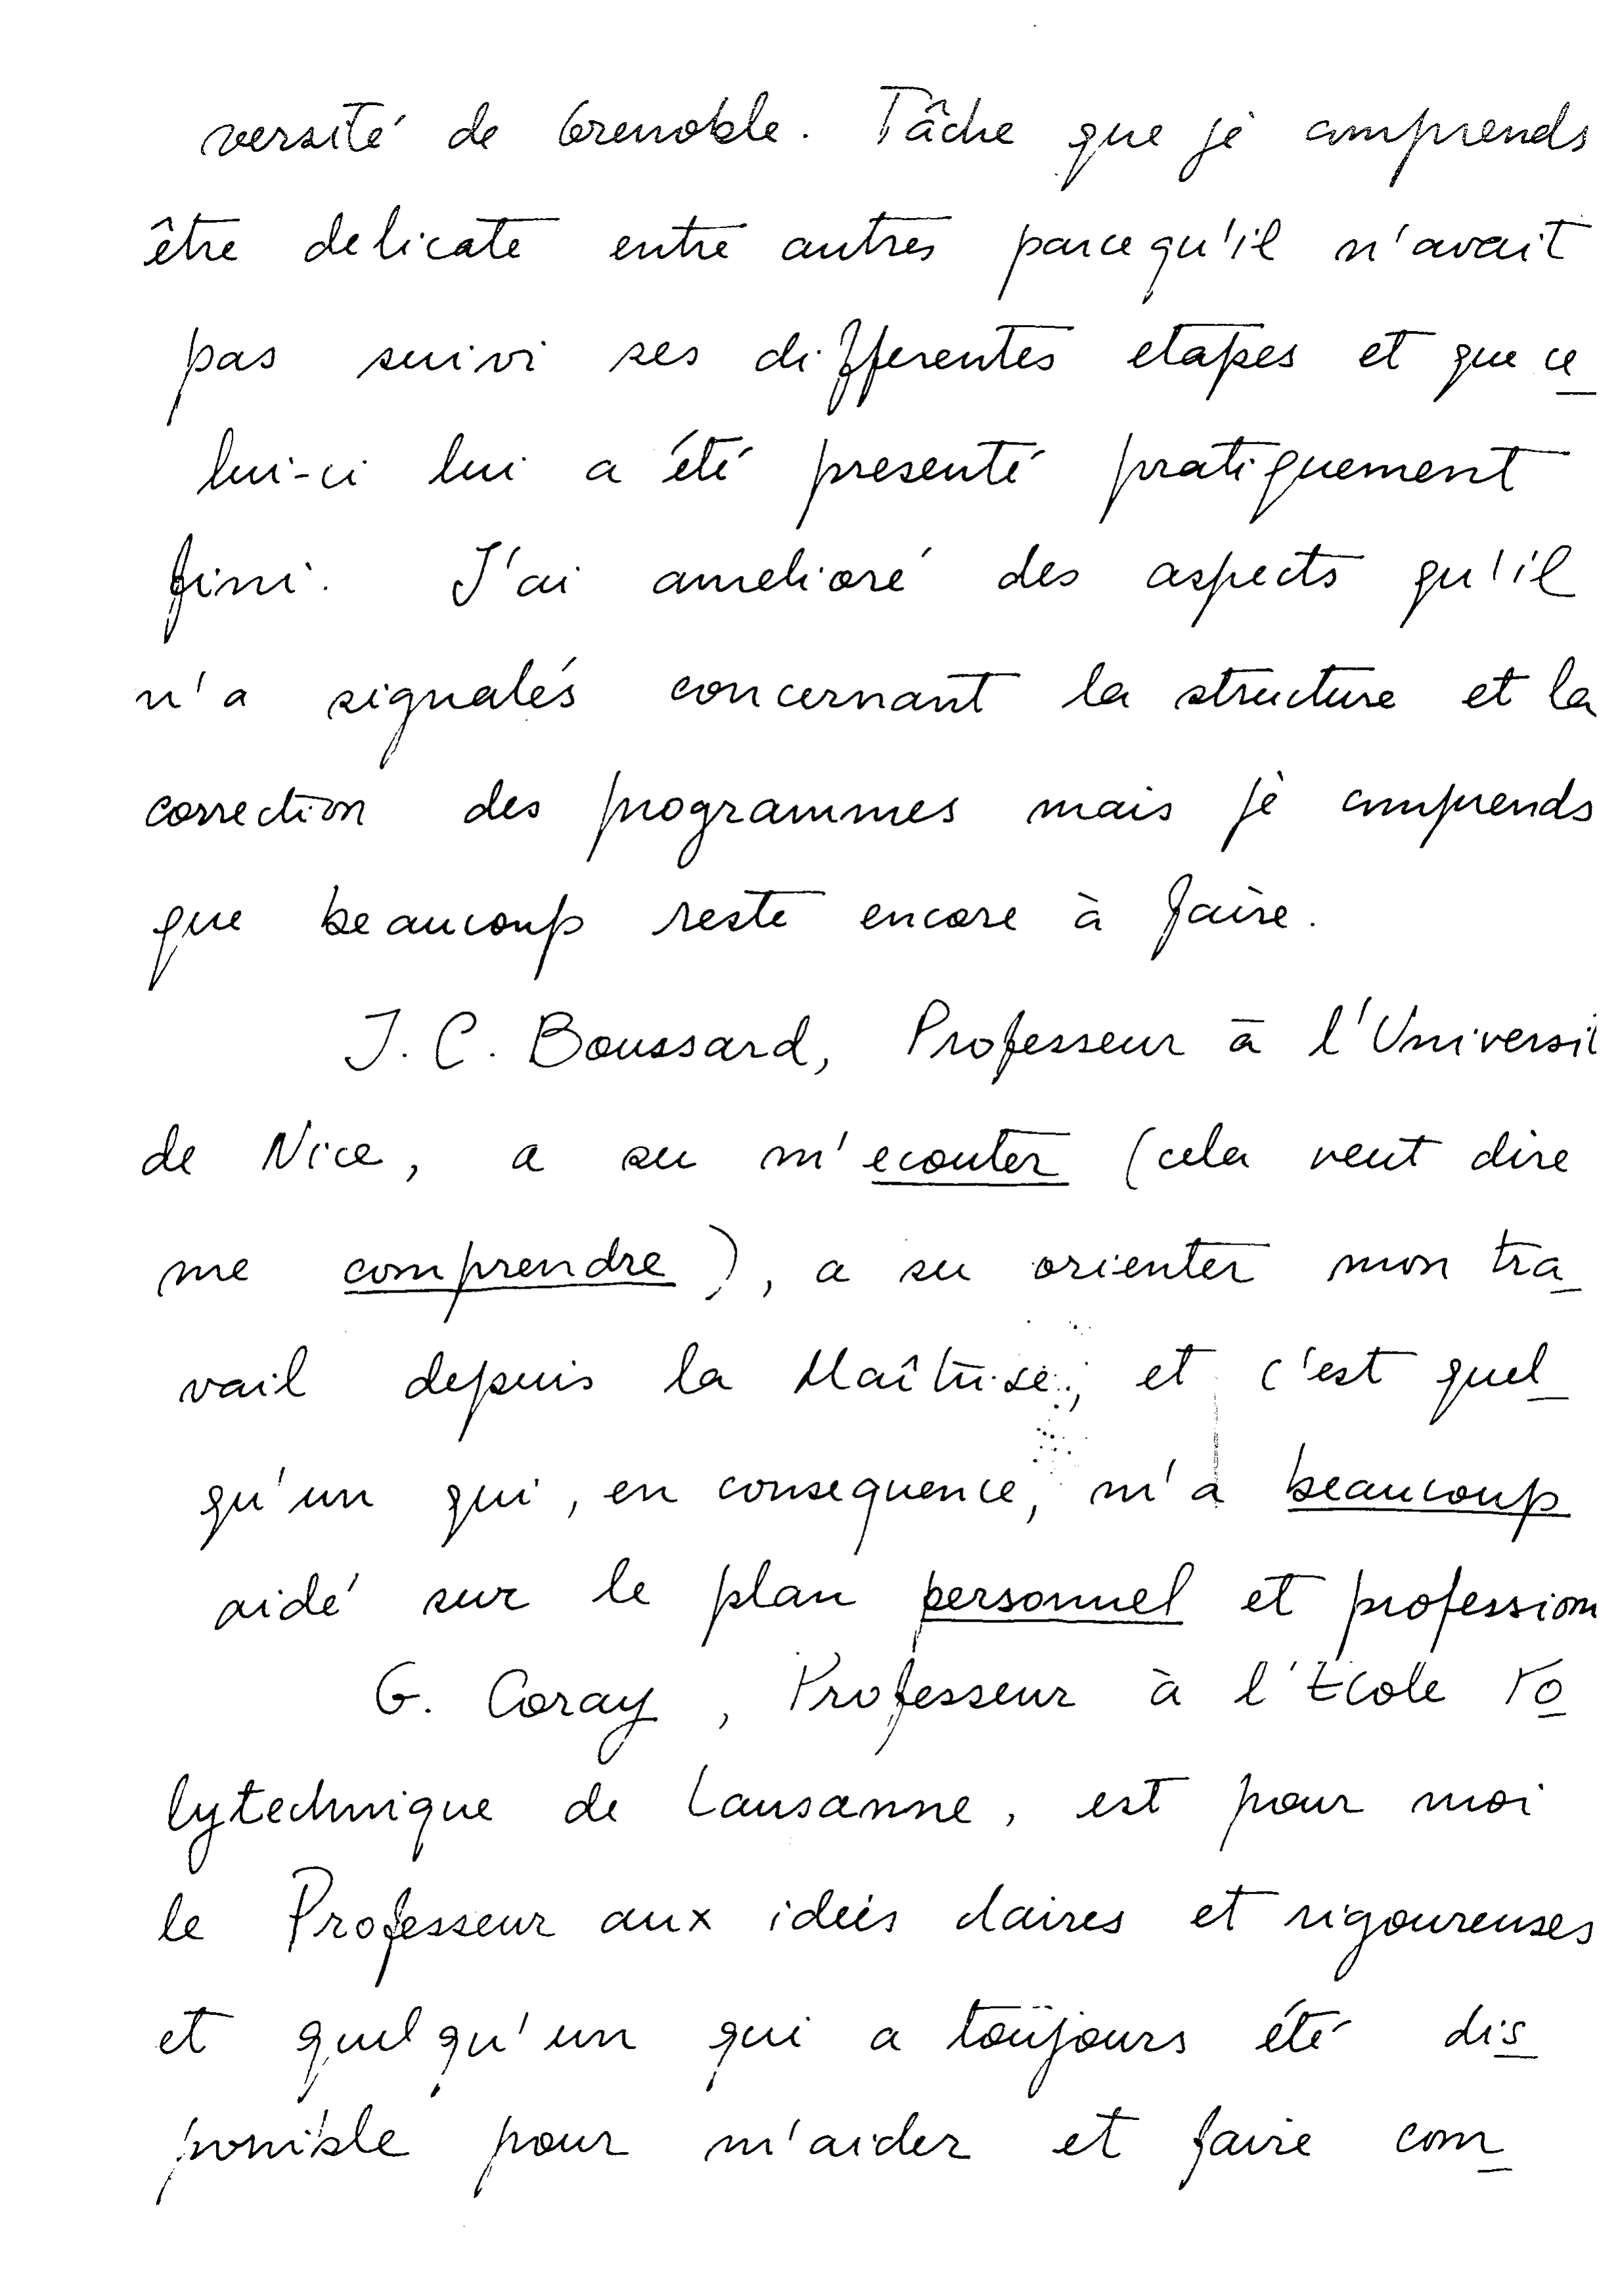 versité de Grenoble. Tâche que je comprends
être delicate entre autres parcequ'il n'avait
pas suivi ses differentes etapes et que ce_
lui-ci lui a été presenté pratiquement
fini. J'ai amelioré des aspects qu'il
n'a signalés concernant la structure et la
correction des programmes mais je comprends
que beaucoup reste encore à faire.
J. C. Boussard, Professeur à l'Universit
de Nice, a su m'ecouter (cela veut dire
me comprendre), a su orienter mon tra_
vail depuis la Maîtrise, et c'est quel_
qu'un qui, en consequence, m'a beaucoup
aidé sur le plan personnel et profession
G. Coray, Professeur à l'Ecole Po_
lytechnique de Lausanne, est pour moi
le Professeur aux idées claires et rigoureuses
et quelqu'un qui a toujours été dis_
ponible pour m'aider et faire com_